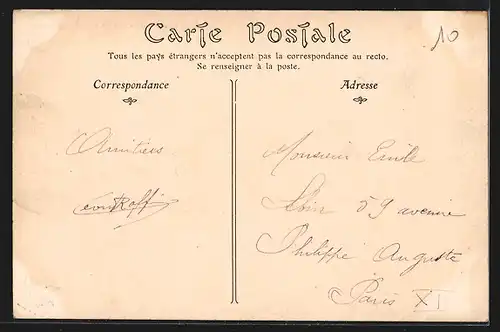 10
Carte Postale
Tous les pays étrangers n'acceptent pas la correspondance au recto.
Se renseigner à la poste.
Correspondance
Amitiés
Adresse
Monsieur Emile
59 avenue
Philippe Auguste
Paris XI